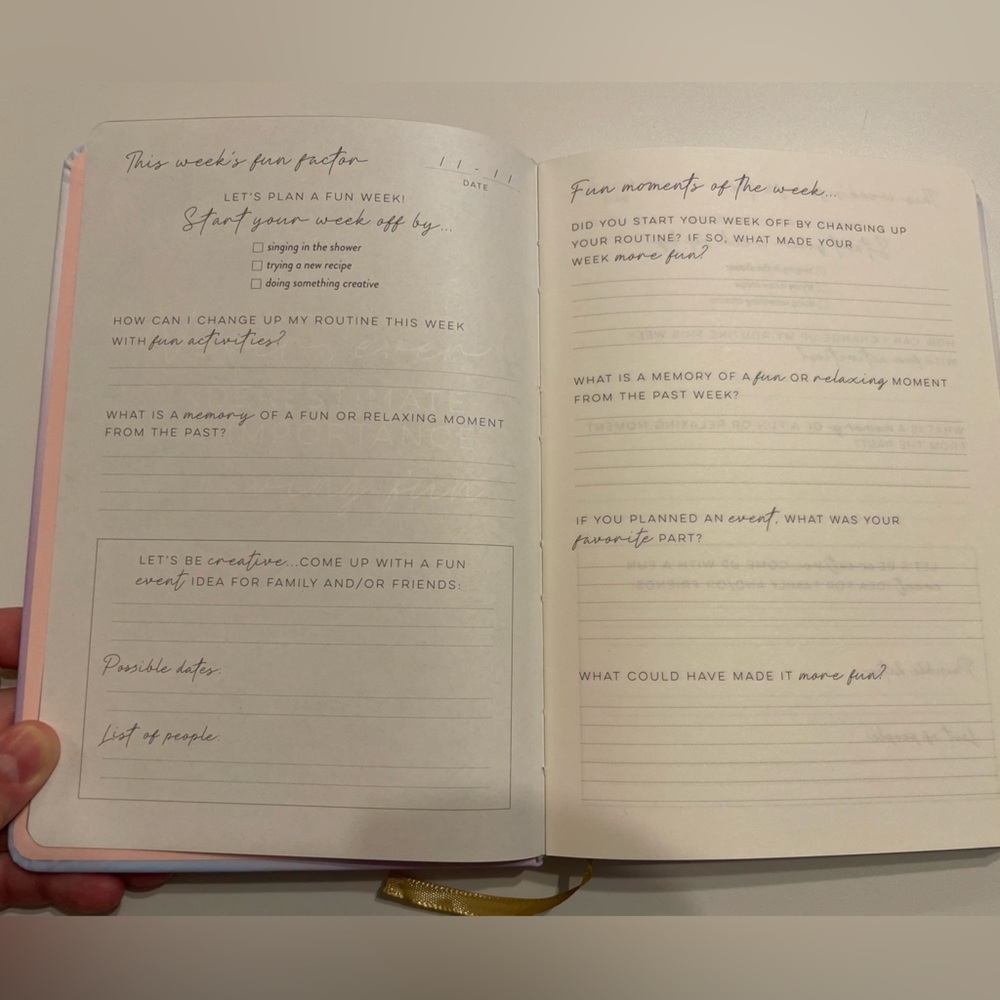 This week's fun factor
DATE
LET'S PLAN A FUN WEEK!
Start your week off by...
singing in the shower
trying a new recipe
doing something creative
HOW CAN I CHANGE UP MY ROUTINE THIS WEEK
WITH fun activities?
WHAT IS A memory OF A FUN OR RELAXING MOMENT
FROM THE PAST?
LET'S BE creative...COME UP WITH A FUN
event IDEA FOR FAMILY AND/OR FRIENDS:
Possible dates:
List of people:
Fun moments of the week...
DID YOU START YOUR WEEK OFF BY CHANGING UP
YOUR ROUTINE? IF SO, WHAT MADE YOUR
WEEK more fun?
WHAT IS A MEMORY OF A fun OR relaxing MOMENT
FROM THE PAST WEEK?
IF YOU PLANNED AN event, WHAT WAS YOUR
favorite PART?
WHAT COULD HAVE MADE IT more fun?